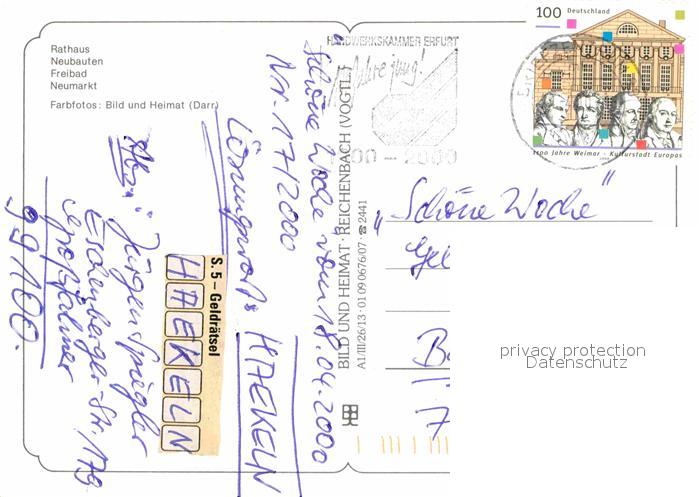 Rathaus
Neubauten
Freibad
Neumarkt
Farbfotos: Bild und Heimat (Darr)
"Schöne Woche" vom 18.04.2000
Nr. 17/2000
Lösungswort: HAEKELN
S. 5 – Geldrätsel
HAEKELN
Abs.: Jürgen Spiegler
Eschenberger-Str. 17g
99100.
BILD UND HEIMAT · REICHENBACH (VOGTL.)
A1/III/26/13 · 01 09 0676/07 · ☎ 2441
HANDWERKSKAMMER ERFURT
Jahre jung!
1900 – 2000
100 Deutschland
1100 Jahre Weimar – Kulturstadt Europas
„Schöne Woche"
Gel
B
7
privacy protection
Datenschutz